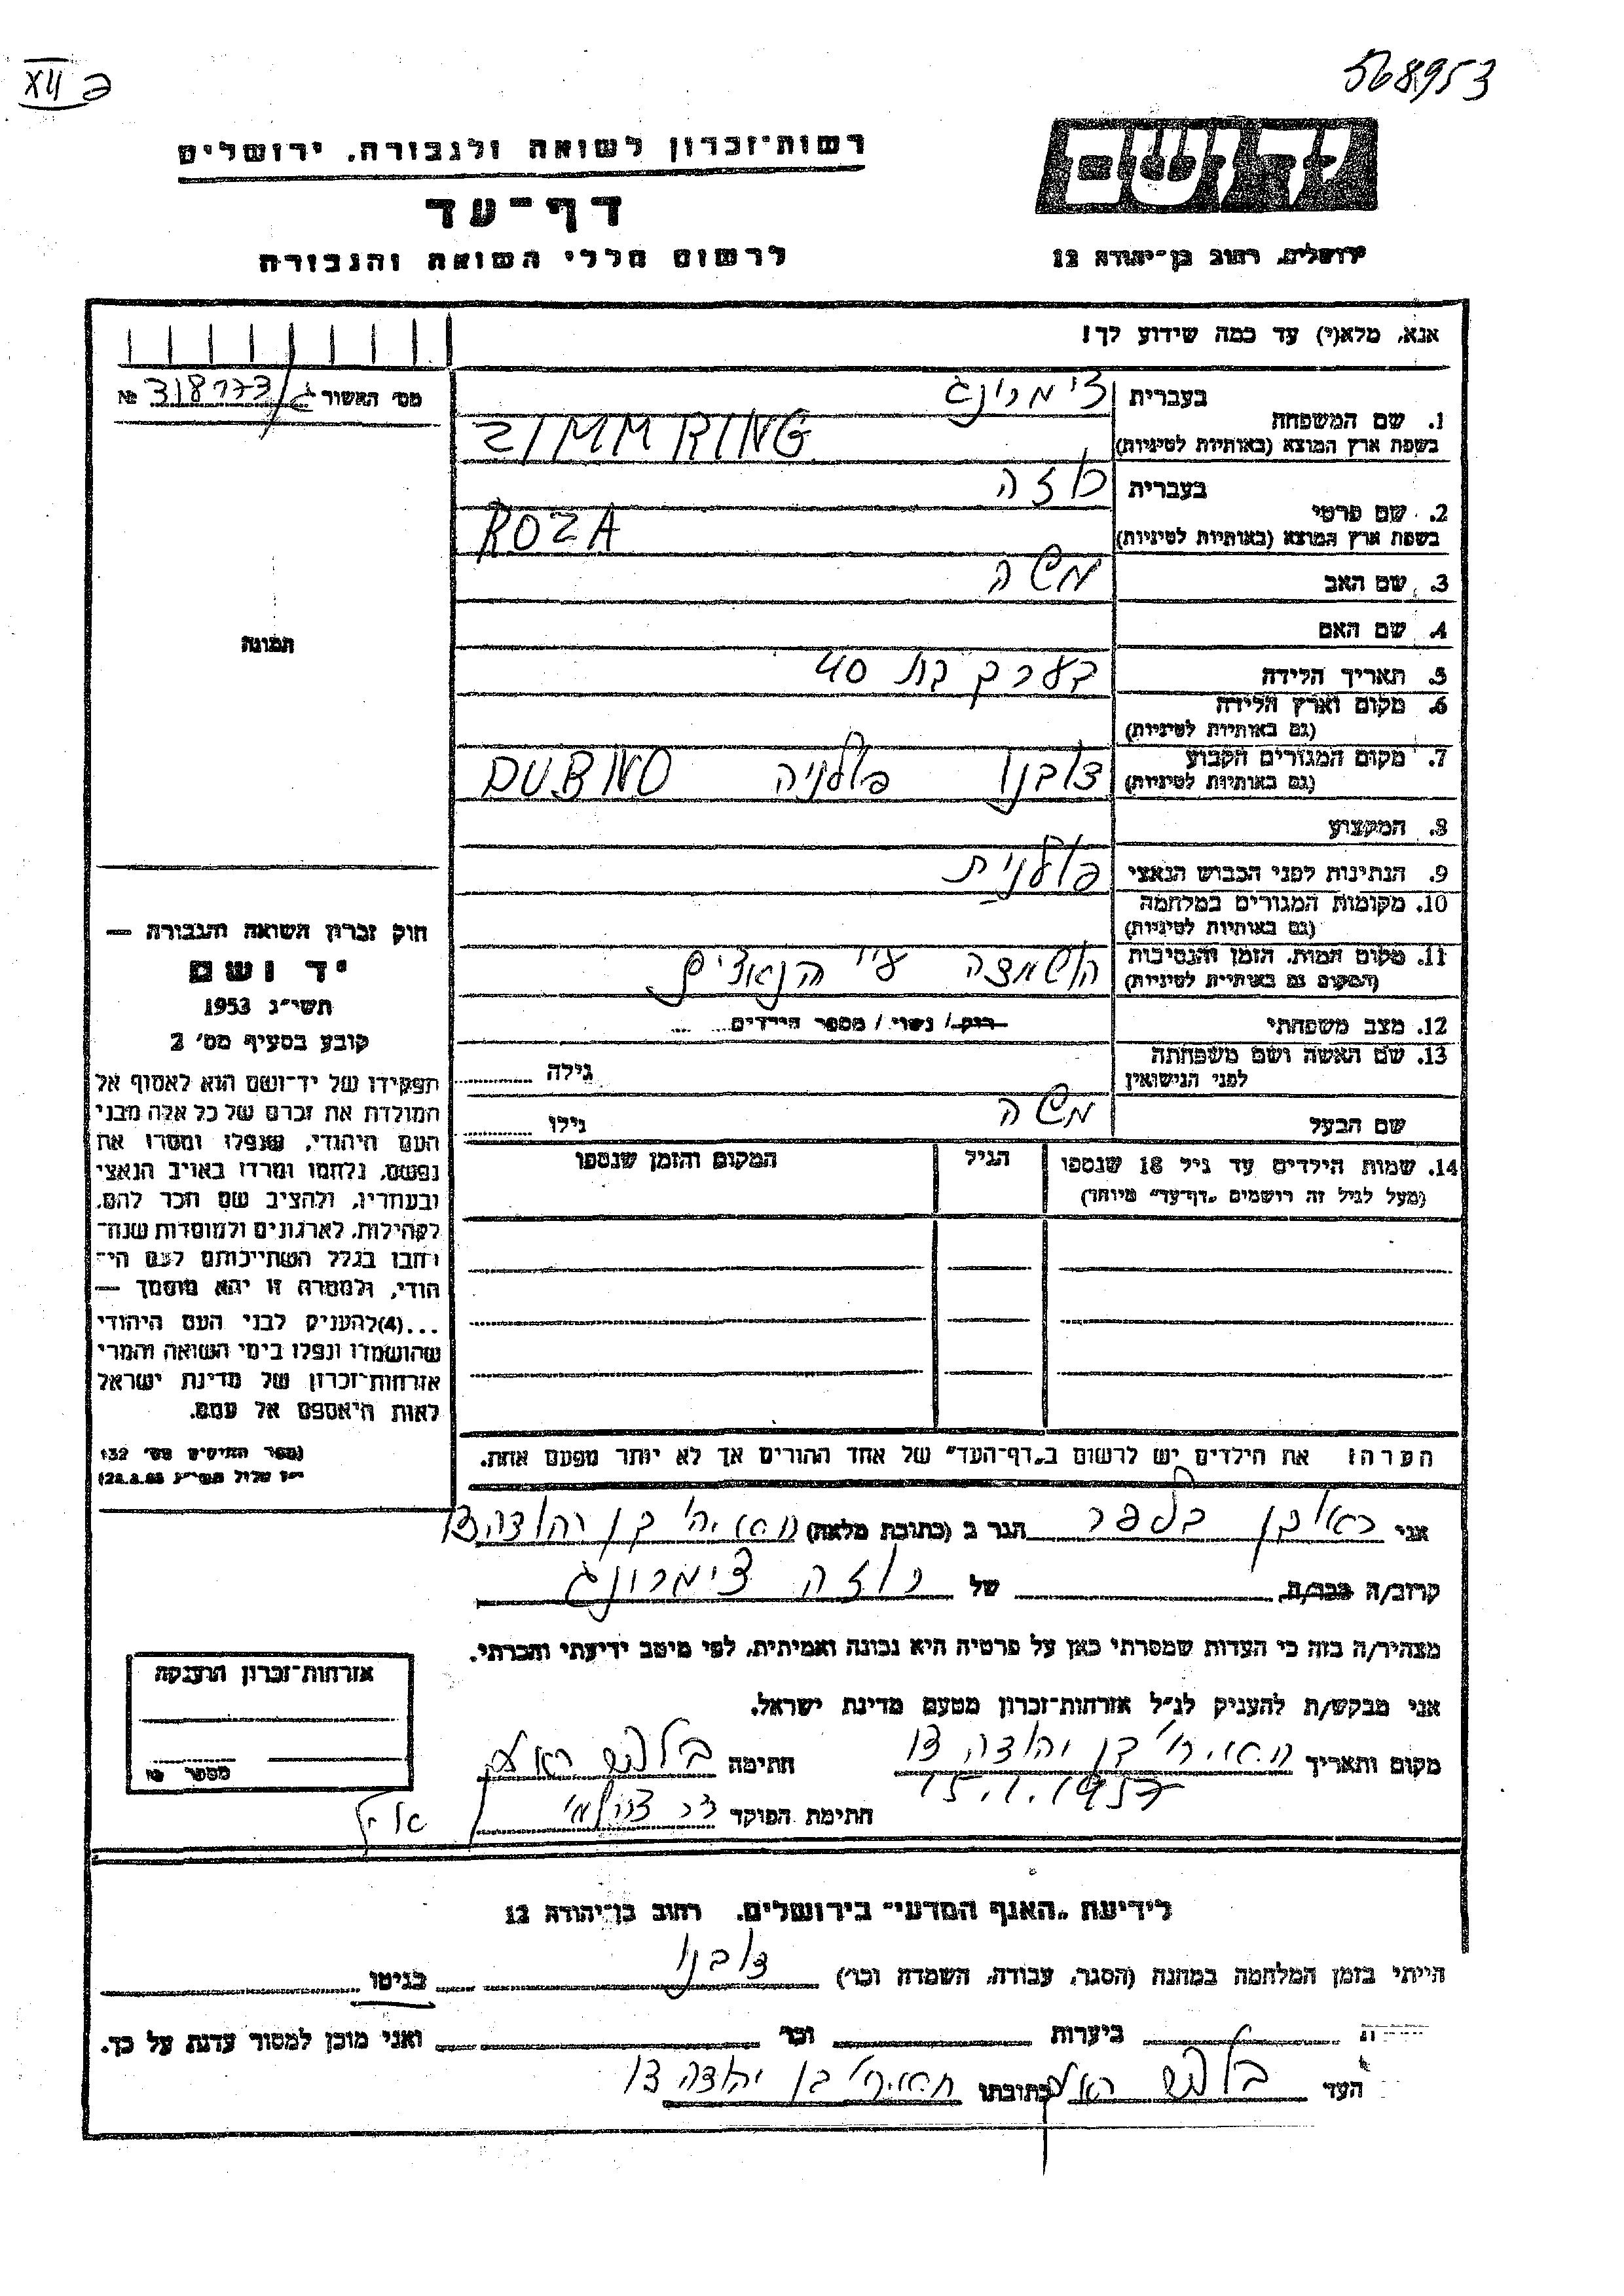 568953
XII
יד ושם
רשות־זכרון לשואה ולגבורה, ירושלים
דף־עד
לרשום חללי השואה והגבורה
ירושלים, רחוב בן־יהודה 12
אנא, מלא(י) עד כמה שידוע לך!
מס׳ האשור ג/318773 №
1. שם המשפחה
בעברית צימרינג
בשפת ארץ המוצא (באותיות לטיניות) ZIMMRING
2. שם פרטי
בעברית רוזה
בשפת ארץ המוצא (באותיות לטיניות) ROZA
3. שם האב משה
4. שם האם
5. תאריך הלידה בערך בת 40
6. מקום וארץ הלידה
(גם באותיות לטיניות)
7. מקום המגורים הקבוע דובנו פולניה DUBNO
(גם באותיות לטיניות)
8. המקצוע
9. הנתינות לפני הכבוש הנאצי פולנית
10. מקומות המגורים במלחמה
(גם באותיות לטיניות)
11. מקום המות, הזמן והנסיבות הושמדה ע״י הנאצים
(המקום גם באותיות לטיניות)
12. מצב משפחתי רוק/ נשוי/ מספר הילדים
13. שם האשה ושם משפחתה
לפני הנישואין
גילה
שם הבעל משה גילו
14. שמות הילדים עד גיל 18 שנספו הגיל המקום והזמן שנספו
(מעל לגיל זה רושמים „דף־עד״ מיוחד)
תמונה
חוק זכרון השואה והגבורה —
יד ושם
תשי״ג 1953
קובע בסעיף מס׳ 2
תפקידו של יד־ושם הוא לאסוף אל
המולדת את זכרם של כל אלה מבני
העם היהודי, שנפלו ומסרו את
נפשם, נלחמו ומרדו באויב הנאצי
ובעוזריו, ולהציב שם וזכר להם,
לקהילות, לארגונים ולמוסדות שנח־
רבו בגלל השתייכותם לעם הי־
הודי, ולמטרה זו יהא מוסמך —
...(4)להעניק לבני העם היהודי
שהושמדו ונפלו בימי השואה והמרי
אזרחות־זכרון של מדינת ישראל
לאות היאספם אל עמם.
(ספר החוקים מס׳ 132
הערה: את הילדים יש לרשום ב„דף־העד״ של אחד ההורים אך לא יותר מפעם אחת.
אני ראובן הגר ב (כתובת מלאה) בן יהודה
קרוב/ה מכר/ה של רוזה צימרינג
מצהיר/ה בזה כי העדות שמסרתי כאן על פרטיה היא נכונה ואמיתית, לפי מיטב ידיעתי והכרתי.
אני מבקש/ת להעניק לנ״ל אזרחות־זכרון מטעם מדינת ישראל.
מקום ותאריך בן יהודה חתימה
15.1.1957
חתימת הפוקד
אזרחות־זכרון הוענקה
מספר
לידיעת „האגף המדעי״ בירושלים, רחוב בן־יהודה 12
הייתי בזמן המלחמה במחנה (הסגר, עבודה, השמדה וכו׳) דובנו בגיטו
ביערות וכו׳ ואני מוכן למסור עדות על כך.
העד כתובתו בן יהודה